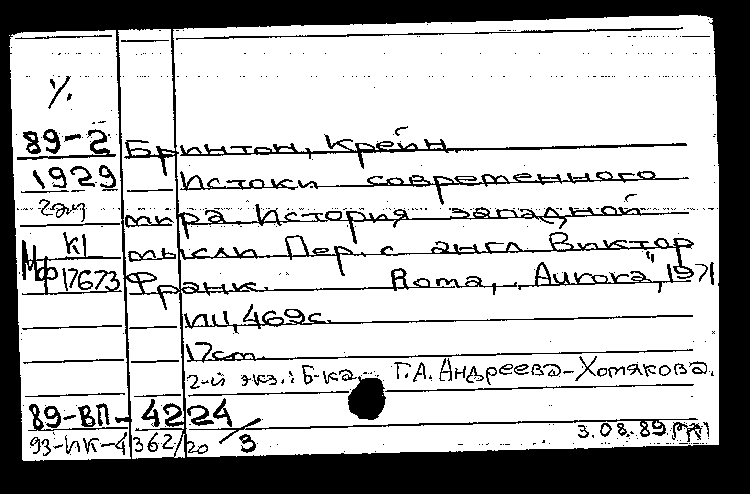 %
89-2 Бринтон, Крейн.
1929 Истоки современного
2 экз мира. История западной
К1 мысли. Пер. с англ. Виктор
Мф 17673 Франк. Roma, „Aurora”, 1971
VIII, 469с.
17cm.
2-й экз.: Б-ка Г.А. Андреева-Хомякова.
89-ВП-4224
93-ИК-4362/20 /3 3.08.89